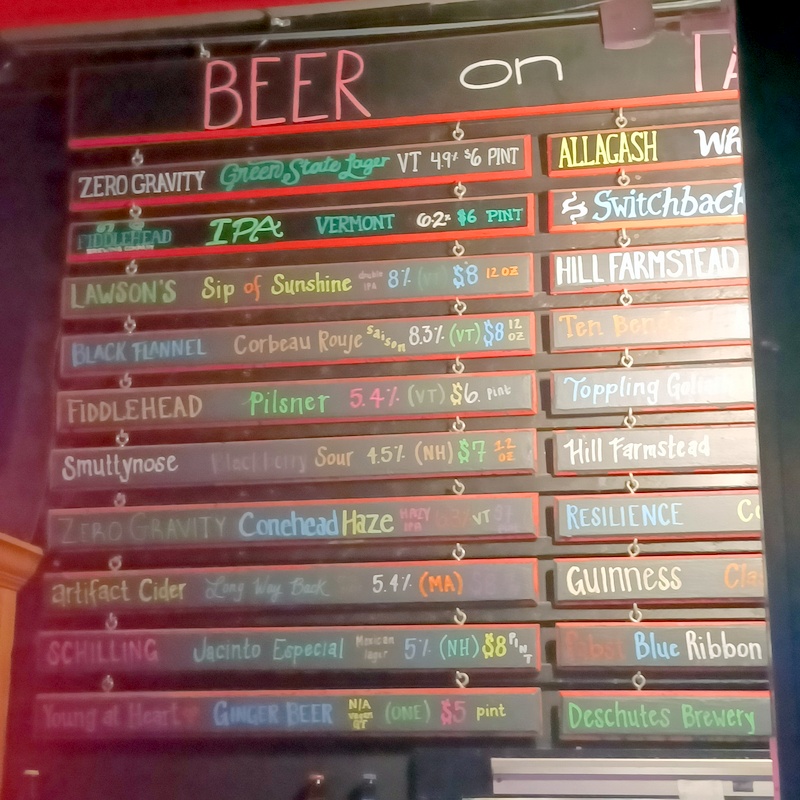 BEER on TA
ZERO GRAVITY Green State Lager VT 4.9% $6 PINT
FIDDLEHEAD IPA VERMONT 6.2% $6 PINT
LAWSON'S Sip of Sunshine double IPA 8% (VT) $8 12 OZ
BLACK FLANNEL Corbeau Rouje saison 8.3% (VT) $8 12 OZ
FIDDLEHEAD Pilsner 5.4% (VT) $6. pint
Smuttynose Blackberry Sour 4.5% (NH) $7 12 OZ
ZERO GRAVITY Conehead Haze HAZY IPA VT
artifact Cider Long Way Back 5.4% (MA)
SCHILLING Jacinto Especial Mexican lager 5% (NH) $8 PINT
Young at Heart GINGER BEER N/A (OME) $5 pint
ALLAGASH Wh
& Switchback
HILL FARMSTEAD
Ten Ben
Toppling Goliath
Hill Farmstead
RESILIENCE Co
GUINNESS Cla
Pabst Blue Ribbon
Deschutes Brewery